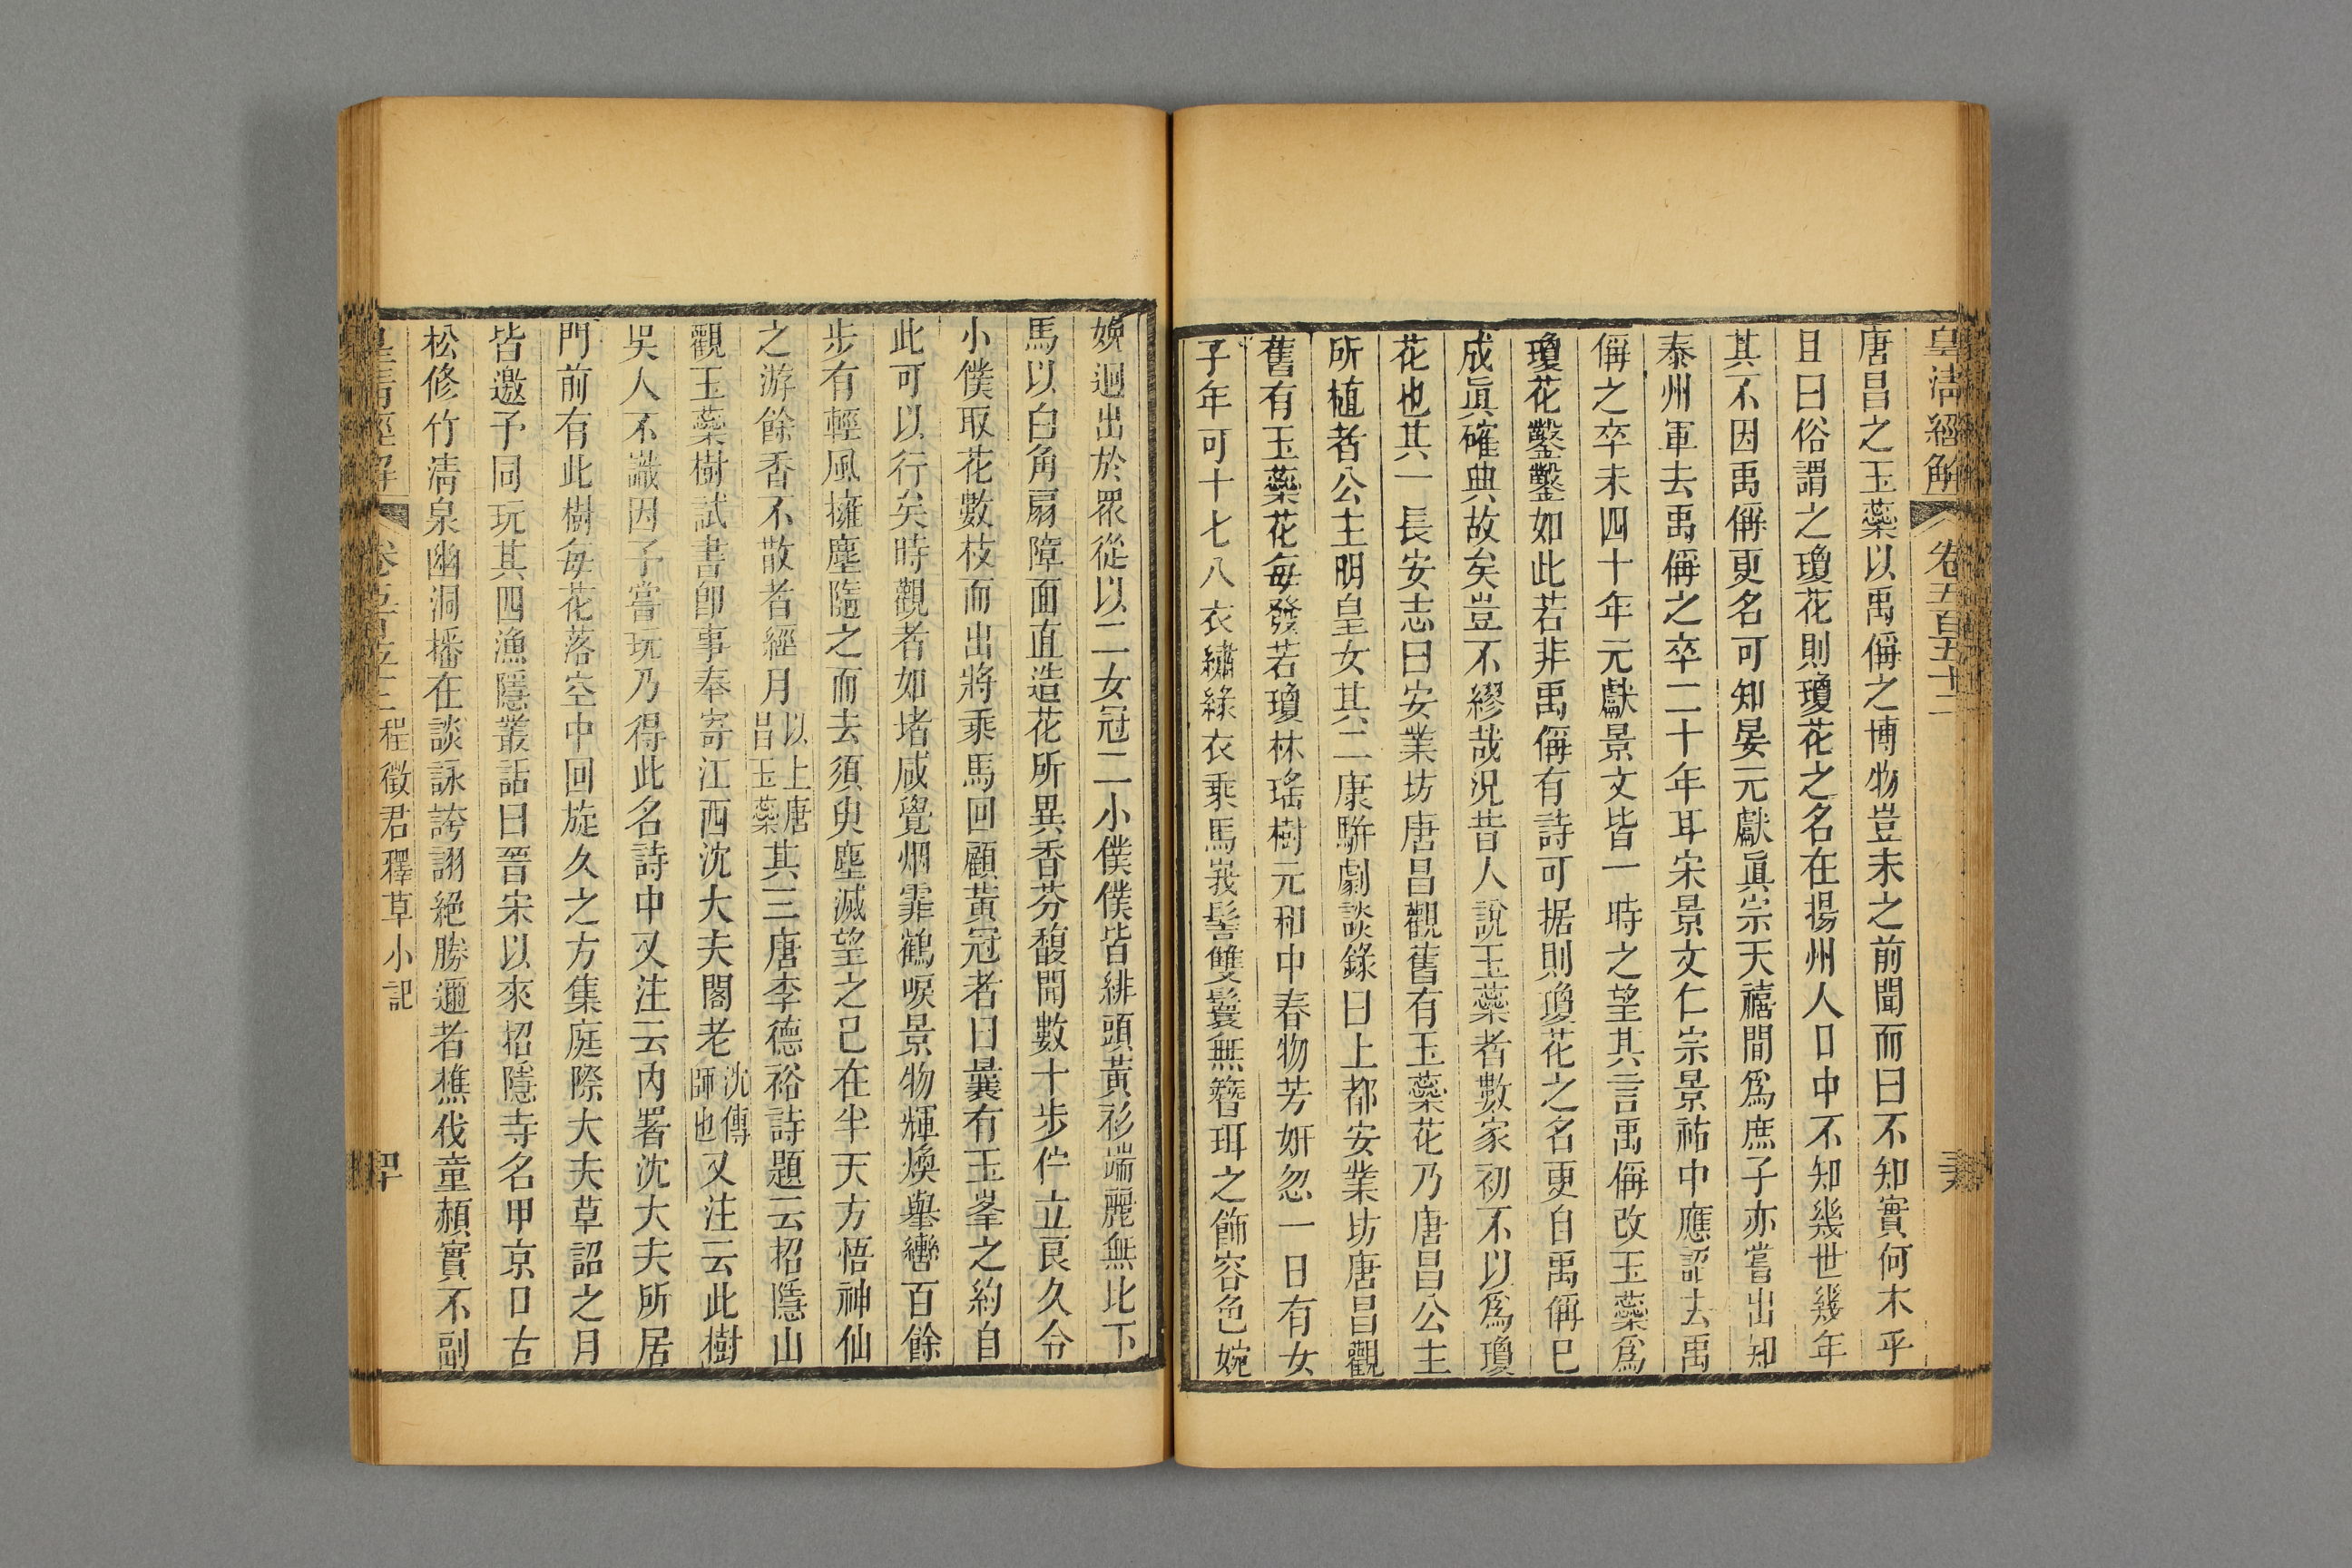 皇清經解
卷五百五十二
唐昌之玉蘂以禹偁之博物豈未之前聞而曰不知實何木乎
且曰俗謂之瓊花則瓊花之名在揚州人口中不知幾世幾年
其不因禹偁更名可知晏元獻眞宗天禧間爲庶子亦嘗出知
泰州軍去禹偁之卒二十年耳宋景文仁宗景祐中應詔去禹
偁之卒未四十年元獻景文皆一時之望其言禹偁改玉蘂爲
瓊花鑿鑿如此若非禹偁有詩可据則瓊花之名更自禹偁已
成眞確典故矣豈不繆哉況昔人說玉蘂者數家初不以爲瓊
花也其一長安志曰安業坊唐昌觀舊有玉蘂花乃唐昌公主
所植者公主明皇女其二康騈劇談錄曰上都安業坊唐昌觀
舊有玉蘂花每發若瓊林瑤樹元和中春物芳妍忽一日有女
子年可十七八衣繡綠衣乘馬峩髻雙鬟無簪珥之飾容色婉
婉迥出於眾從以二女冠二小僕僕皆緋頭黃衫端麗無比下
馬以白角扇障面直造花所異香芬馥聞數十步佇立良久令
小僕取花數枝而出將乘馬回顧黃冠者曰曩有玉峯之約自
此可以行矣時觀者如堵咸覺烟霏鶴唳景物輝煥舉轡百餘
步有輕風擁塵隨之而去須臾塵滅望之已在半天方悟神仙
之游餘香不散者經月以上唐昌玉蘂其三唐李德裕詩題云招隱山
觀玉蘂樹試書卽事奉寄江西沈大夫閣老沈傳師也又注云此樹
吳人不識因予嘗玩乃得此名詩中又注云內署沈大夫所居
門前有此樹每花落空中回旋久之方集庭際大夫草詔之月
皆邀予同玩其四漁隱叢話曰晉宋以來招隱寺名甲京口古
松修竹清泉幽洞播在談詠誇詡絕勝邇者樵伐童赬實不副
皇清經解
卷五百五十二 程徵君釋草小記